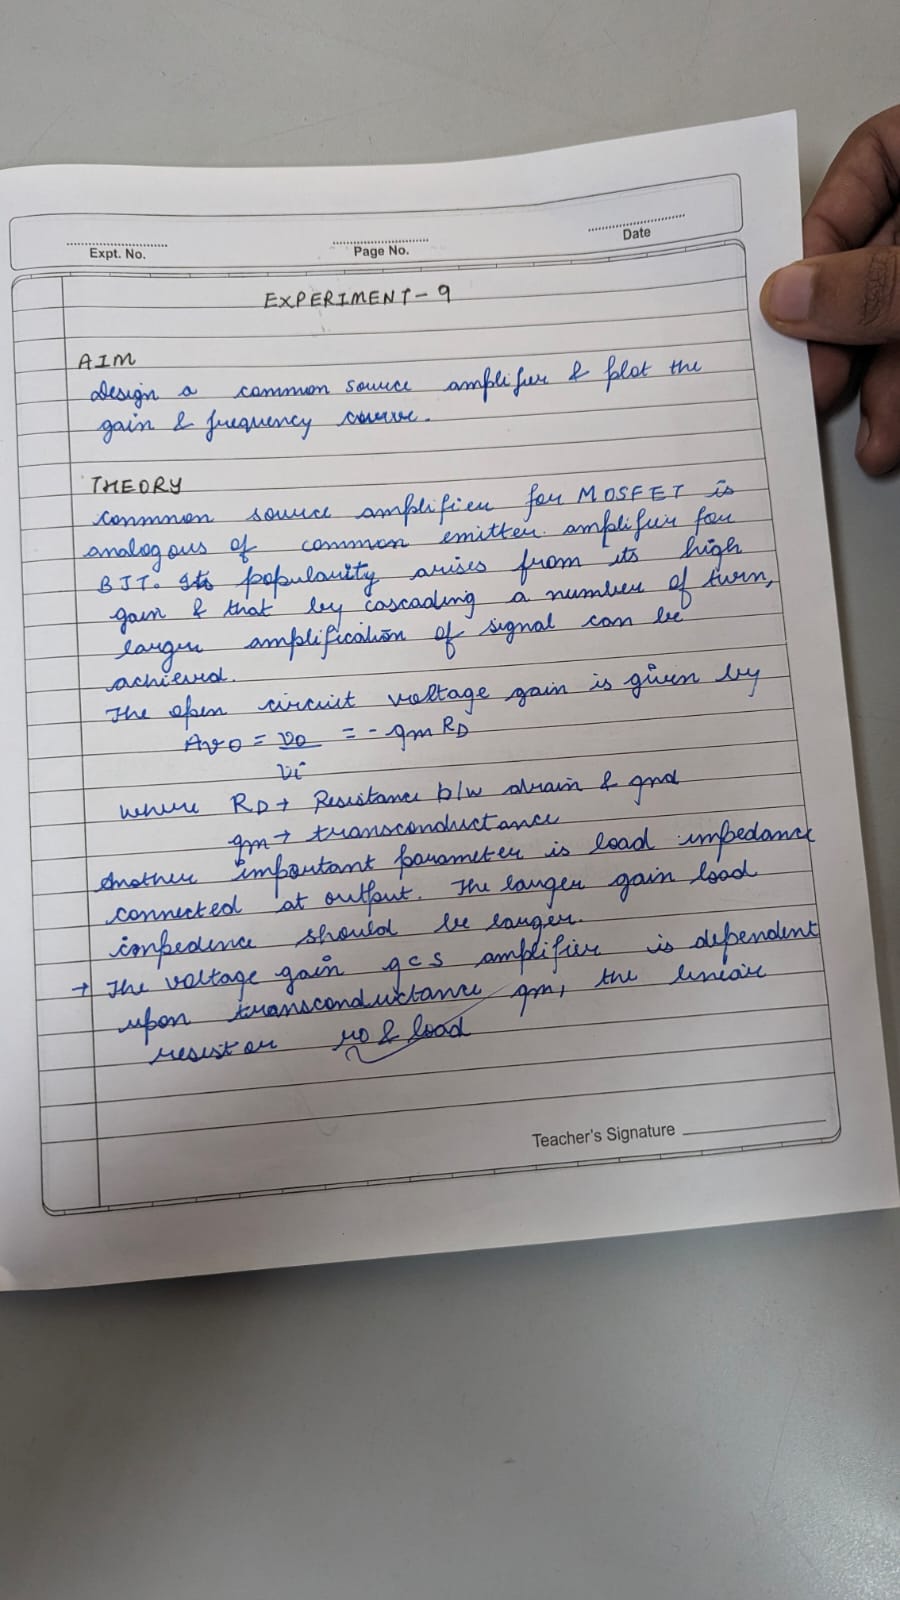 Expt. No.
Page No.
Date
EXPERIMENT-9
AIM
Design a common source amplifier & plot the
gain & frequency curve.
THEORY
common source amplifier for MOSFET is
analogous of common emitter amplifier for
BJT. Its popularity arises from its high
gain & that by cascading a number of turn,
larger amplification of signal can be
achieved.
The open circuit voltage gain is given by
Avo = vo = - gm RD
vi
where RD → Resistance b/w drain & gnd
gm → transconductance
Another important parameter is load impedance
connected at output. The larger gain load
impedence should be larger.
→ The voltage gain gcs amplifier is dependent
upon transconductance gm, the linear
resistor ro & load
Teacher's Signature